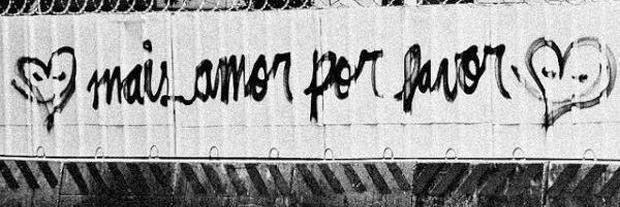 mais amor por favor